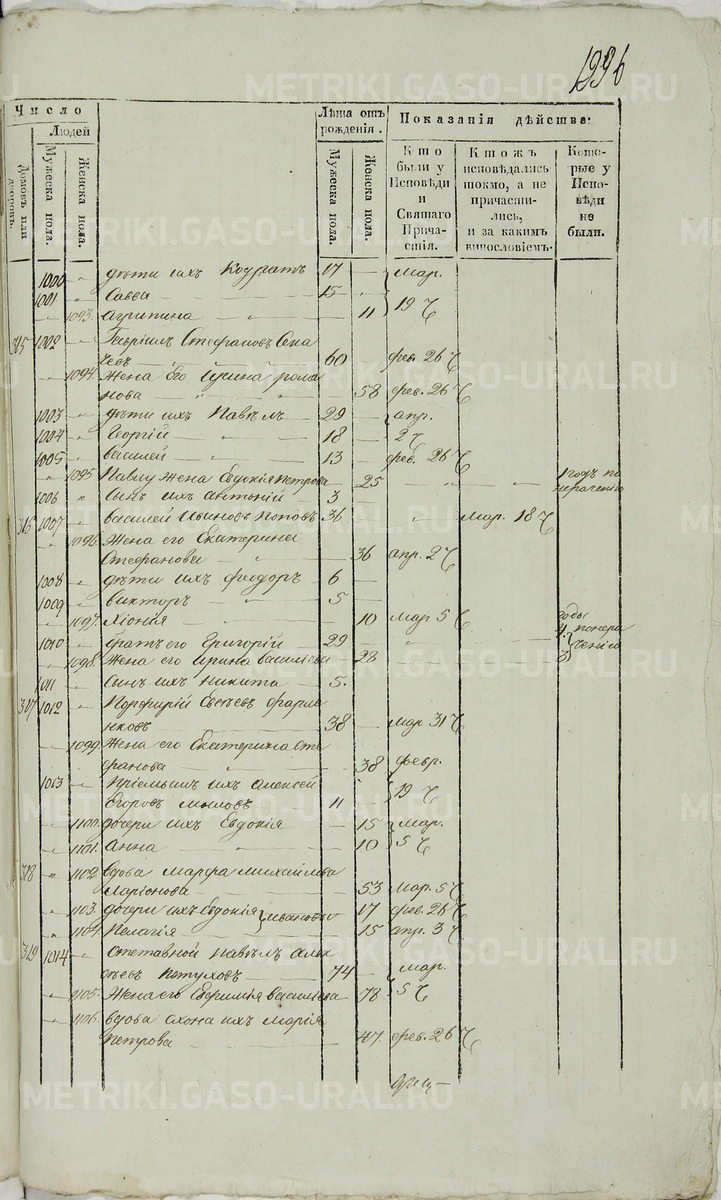 1996
Число
Людей
Домовъ или дворовъ.
Мужеска пола.
Женска пола.
Лѣта отъ рожденія.
Мужеска пола.
Женска пола.
Показанія дѣйства:
Кто были у Исповѣди и Святаго Причастія.
Ктожъ исповѣдались токмо, а не причастились, и за какимъ винословіемъ.
Которые у Исповѣди не были.
1000 „ дѣти ихъ Кодратъ 17 — мар.
1001 „ Савва 15 —
„ 1093. Агрипина 11 19 Ч
315 1002 „ Гаврiилъ Стефановъ Ска
чевъ 60 фев. 26 Ч
„ 1094. Жена его Ирина Рома
нова 58 фев. 26 Ч
1003 „ дѣти ихъ Павелъ 29 — апр.
1004 „ Георгій 18 — 2 Ч
1005 „ Василей 13 фев. 26 Ч
„ 1095 Павлу жена Евдокія Петрова 25 1 годъ по
нераченію
1006 „ Сынъ ихъ Антоній 3
316 1007 „ Василей Ивановъ Поповъ 36 „ мар. 18 Ч
„ 1096. Жена его Екатерина
Стефанова 36 апр. 2 Ч
1008 „ дѣти ихъ Феодоръ 6 —
1009 „ Викторъ 5
„ 1097. Хіонія 10 мар 5 Ч
1010 „ братъ его Григорій 29
„ 1098. Жена его Ирина Васильева 28
годы
понера
ченію
1011 „ Сынъ ихъ Никита 5.
317 1012 „ Порфирій Евсѣевъ
нковъ 38 мар 31 Ч
„ 1099 Жена его Екатерина Сте
фанова 38 февр.
1013 „ Пріемышъ ихъ Алексѣй
Егоровъ 11 19 Ч
„ 1100. дочери ихъ Евдокія 15 мар.
„ 1101. Анна 10 5 Ч
318 „ 1102. вдова Марфа Михайлова
Ларіонова 53 мар. 5 Ч
„ 1103. дочери ихъ Евдокія Ивановы 17 фев. 26 Ч
„ 1104. Пелагія 15 апр. 3 Ч
319 1014 „ Отставной Павелъ Алек
сѣевъ Петуховъ 74 — мар.
„ 1105. Жена его Евфимія Васильева 78 5 Ч
„ 1106. вдова Сноха ихъ Марія
Петрова 47. фев. 26 Ч
METRIKI.GASO-URAL.RU
METRIKI.GASO-URAL.RU
METRIKI.GASO-URAL.RU
METRIKI.GASO-URAL.RU
METRIKI.GASO-URAL.RU
METRIKI.GASO-URAL.RU
METRIKI.GASO-URAL.RU
METRIKI.GASO-URAL.RU